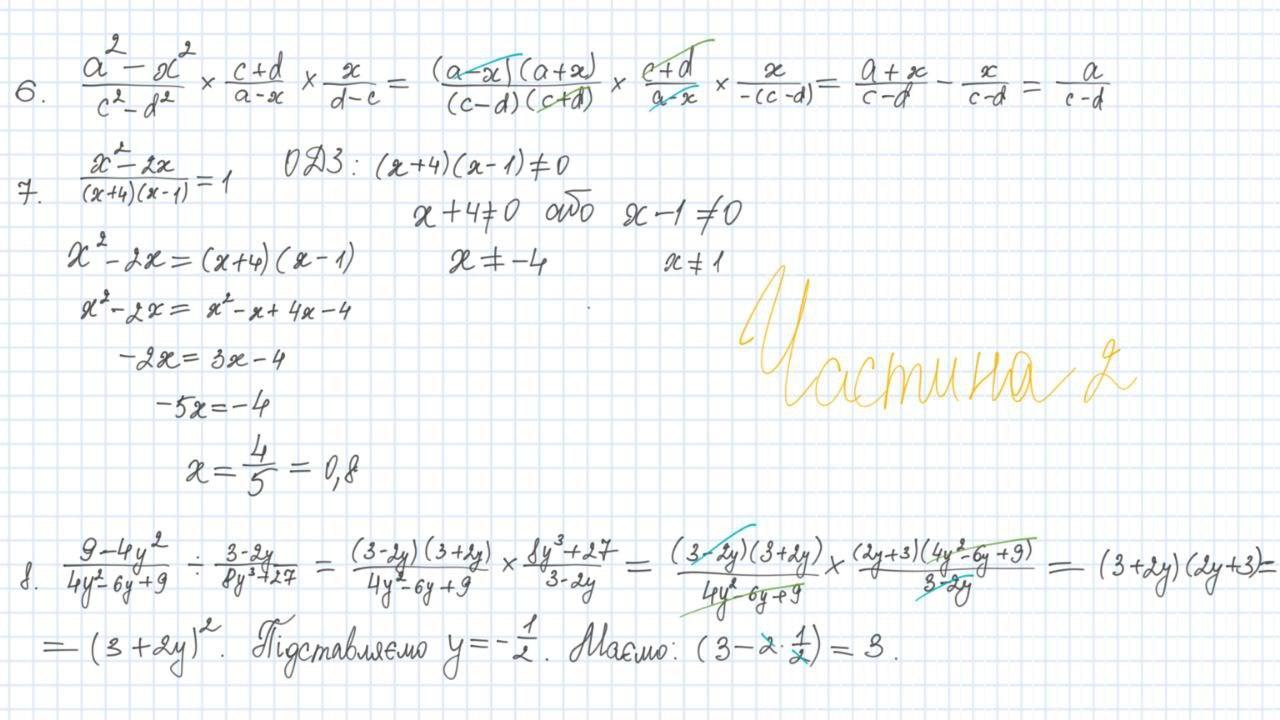 6. (a² − x²)/(c² − d²) × (c+d)/(a−x) × x/(d−c) = ((a−x)(a+x))/((c−d)(c+d)) × (c+d)/(a−x) × x/(−(c−d)) = (a+x)/(c−d) − x/(c−d) = a/(c−d)
7. (x² − 2x)/((x+4)(x−1)) = 1 ОДЗ: (x+4)(x−1) ≠ 0
x + 4 ≠ 0 або x − 1 ≠ 0
x² − 2x = (x+4)(x−1) x ≠ −4 x ≠ 1
x² − 2x = x² − x + 4x − 4
−2x = 3x − 4
Частина 2
−5x = −4
x = 4/5 = 0,8
8. (9 − 4y²)/(4y² − 6y + 9) ÷ (3−2y)/(8y³+27) = ((3−2y)(3+2y))/(4y² − 6y + 9) × (8y³+27)/(3−2y) = ((3−2y)(3+2y))/(4y² − 6y + 9) × ((2y+3)(4y² − 6y + 9))/(3−2y) = (3+2y)(2y+3) =
= (3 + 2y)². Підставляємо y = −1/2. Маємо: (3 − 2 · 1/2) = 3.